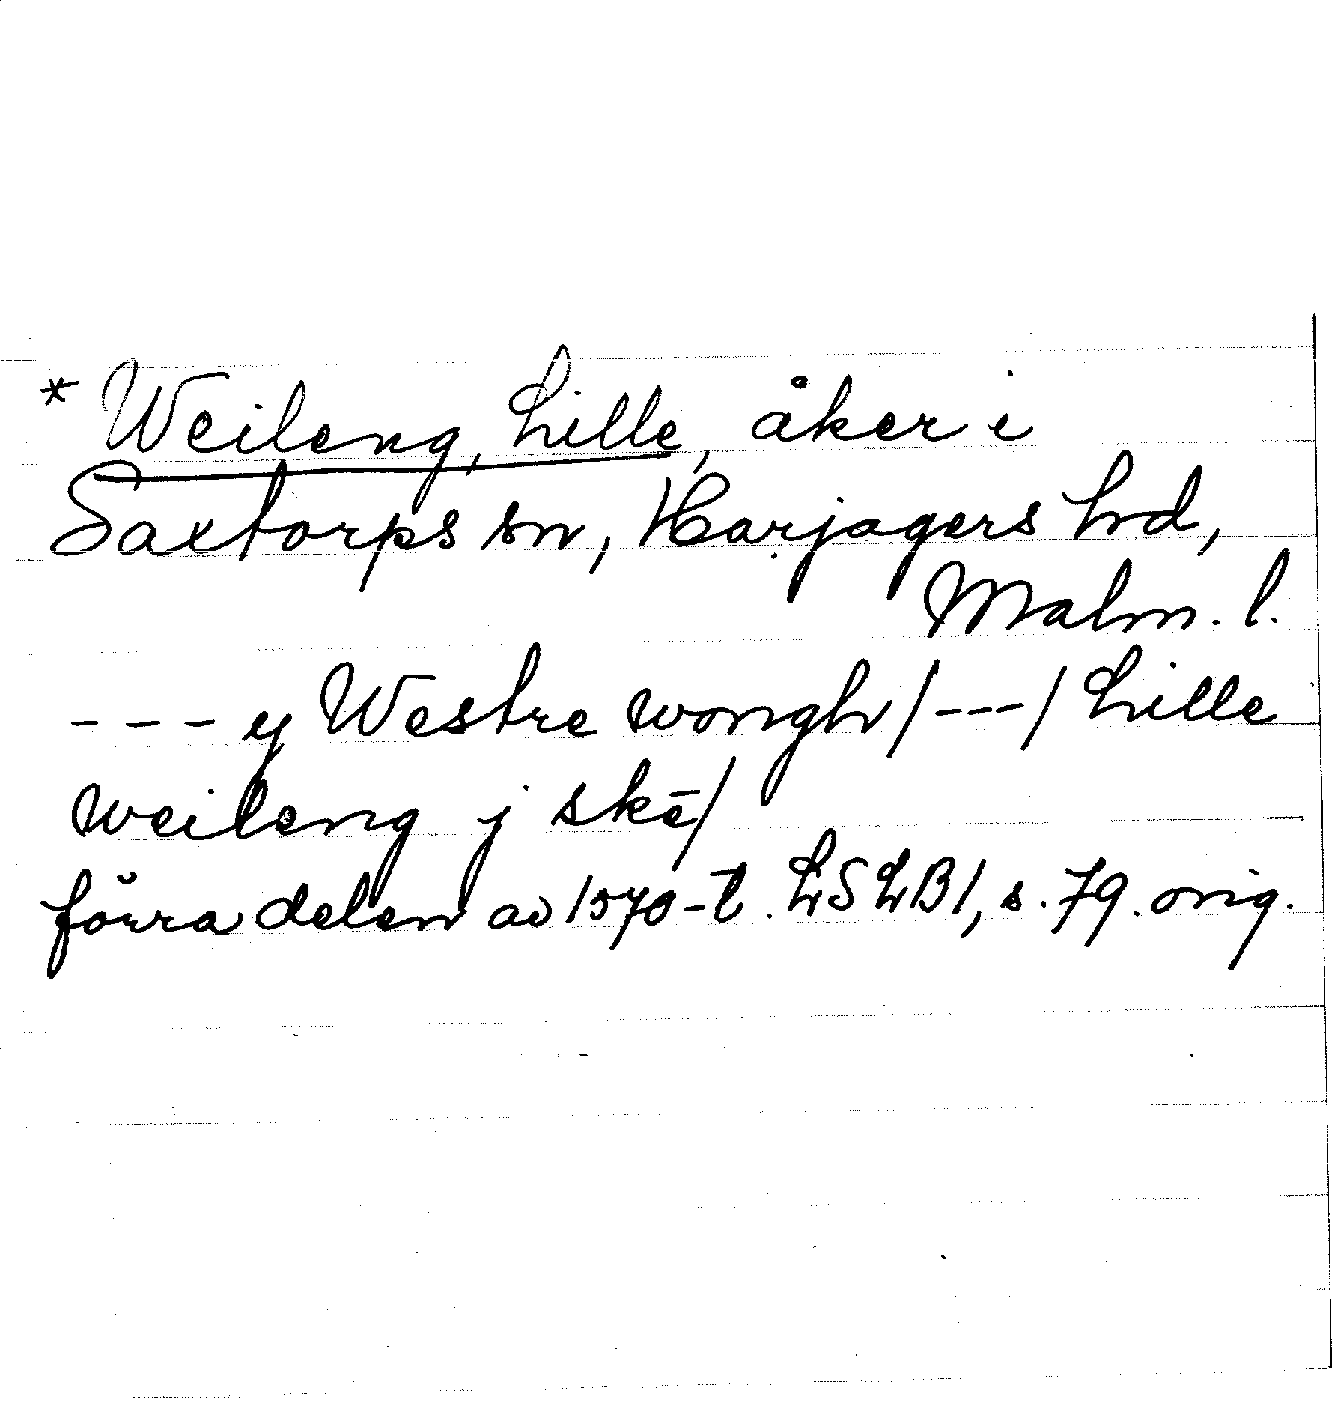 * Weileng, Lille, åker i
Saxtorps sn, Harjagers hd,
Malm. l.
- - - y Westre wongh / --- / Lille
weileng j skē /
förra delen av 1570-t. LSLB1, s. 79. orig.